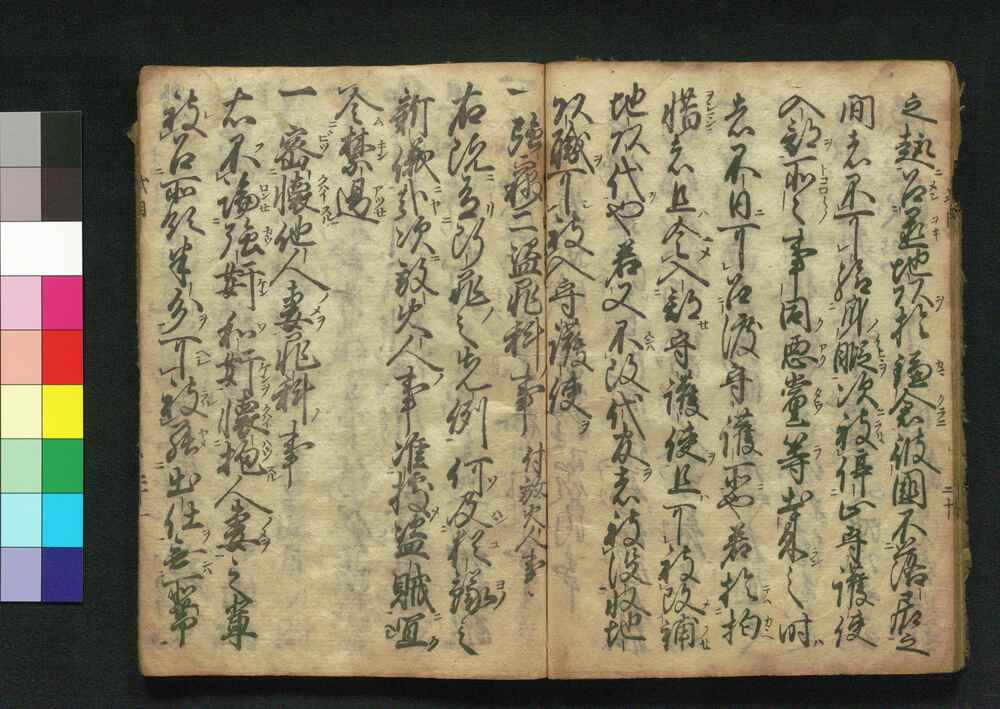 之趣召置地頭於鎌倉彼國不落居之
間者不可給身暇次被停止守護使
入部所々事同悪黨等出来之時
者不日可召渡守護所也若於拘
惜者且令入部守護使且可被改補
地頭代也若又不改代官者被没収地
頭職可被入守護使
一強竊二盗罪科事 付放火人事
右既有断罪之先例何及猶豫之
新儀哉次放火人事准據盗賊宜
令禁遏
一密懐他人妻罪科事
右不論強奸和奸懐抱人妻之輩
被召所領半分可被罷出仕無所帯